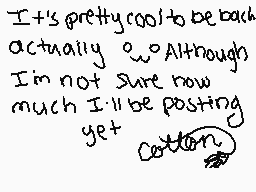 It's pretty cool to be back
actually Although
I'm not sure how
much I'll be posting
yet
cotton